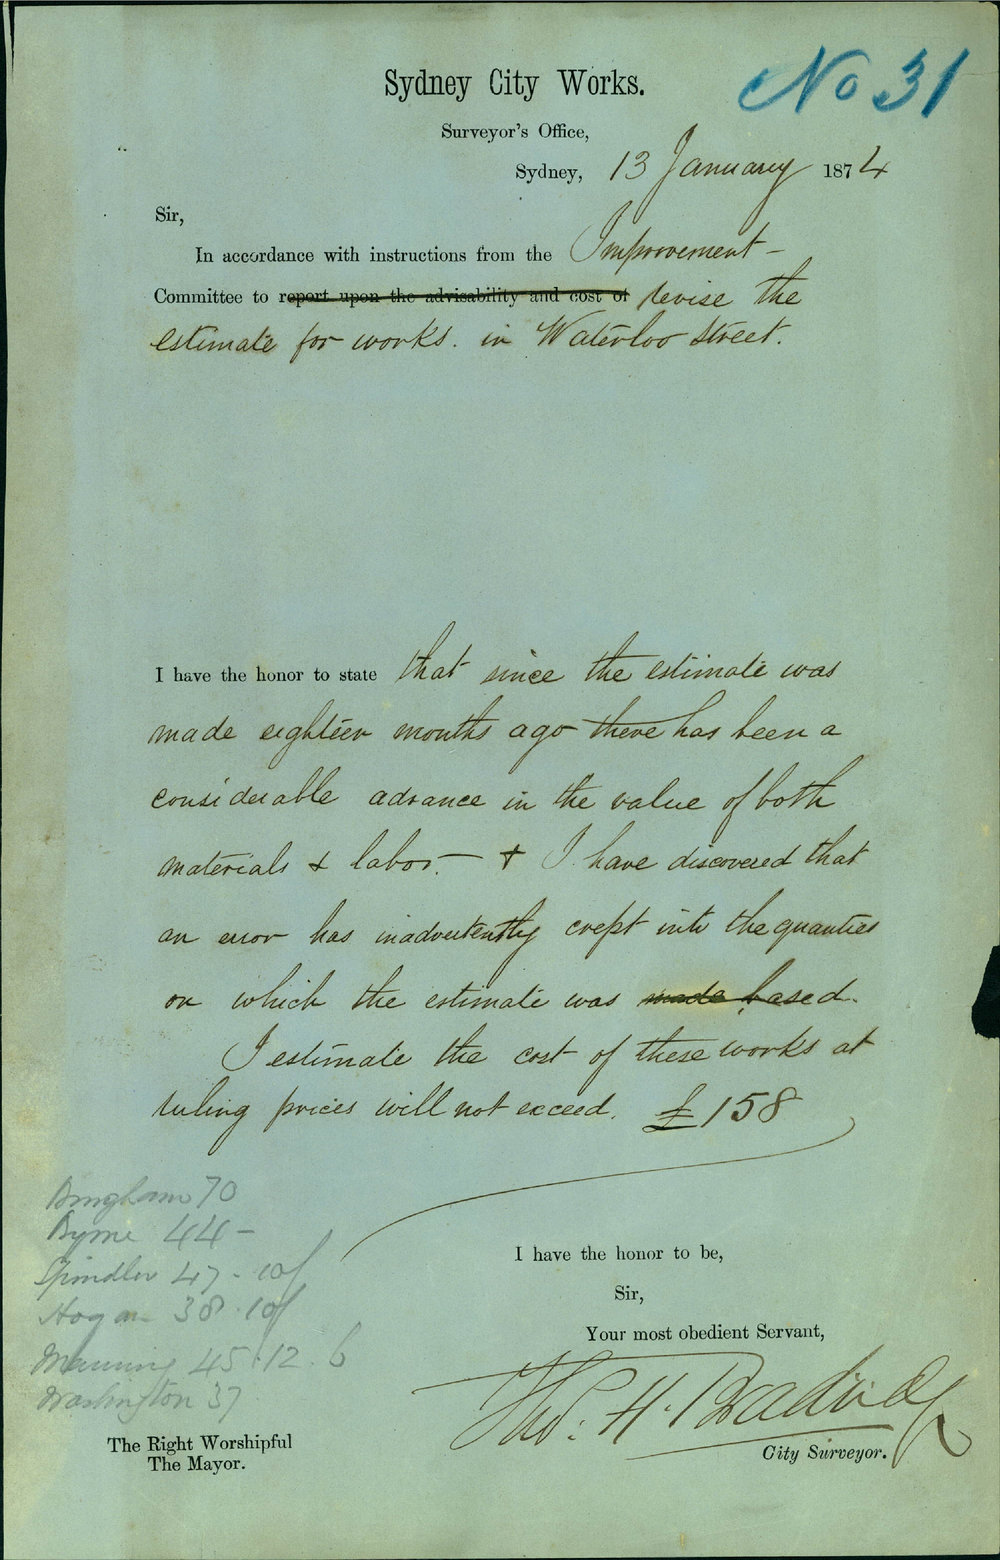 No 31
Sydney City Works.
Surveyor's Office,
Sydney, 13 January 1874
Sir,
In accordance with instructions from the Improvement -
Committee to report upon the advisability and cost of revise the
estimate for works. in Waterloo Street.
I have the honor to state that since the estimate was
made eighteen months ago there has been a
considerable advance in the value of both
materials & labor. — & I have discovered that
an error has inadvertently crept into the quanties
on which the estimate was made based.
I estimate the cost of these works at
ruling prices will not exceed. £158
Bingham 70
Byrne 44 -
Spindler 47 - 10/
Hogan 38 . 10/
Manning 45 . 12 . 6
Washington 37
I have the honor to be,
Sir,
Your most obedient Servant,
Tho. H. Bradridge
City Surveyor.
The Right Worshipful
The Mayor.